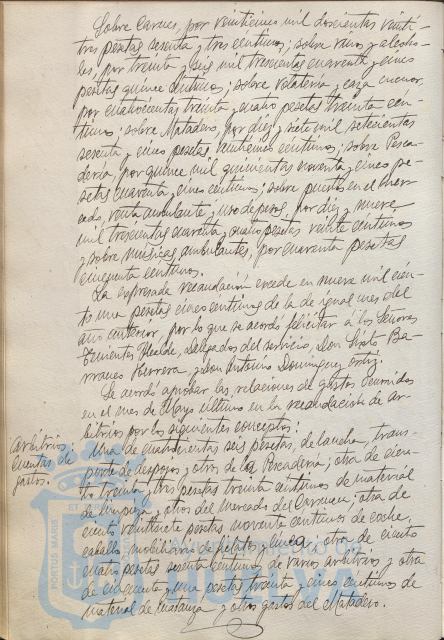 Sobre Carnes, por veinticinco mil doscientas veinti-
tres pesetas sesenta y tres centimos; sobre vinos y alcoho-
les, por treinta y seis mil trescientas cuarenta y cinco
pesetas quince centimos; sobre volatería y caza menor,
por cuatrocientas treinta y cuatro pesetas treinta cen-
timos; sobre Matadero, por diez y siete mil setecientas
sesenta y cinco pesetas, centimos; sobre Pesca-
dería, por quince mil quinientas noventa y cinco pe-
setas cuarenta y cinco centimos; sobre puestos en el mer-
cado, venta ambulante y uso de pesas, por diez y nueve
mil trescientas cuarenta y cuatro pesetas veinte centimos
y sobre musicas ambulantes, por cuarenta pesetas
cincuenta centimos.
La expresada recaudación excede en nueve mil cien-
to una pesetas cinco centimos de la de igual mes del
año anterior, por lo que se acordó felicitar á los Señores
Tenientes Alcalde, Delegados del servicio, Don Sixto Ba-
rranco Herrera y Don Antonio Dominguez Ortiz.
Se acordó aprobar las relaciones de gastos ocurridos
en el mes de Mayo ultimo en la recaudación de ar-
bitrios por los siguientes conceptos:
Arbitrios:
Cuentas de
gastos.
Una de cuatrocientas seis pesetas, de lancha, trans-
porte de despojos y otros de la Pescadería; otra de cien-
to treinta y tres pesetas treinta centimos de material
de limpieza y otros del mercado del Carmen; otra de
ciento veintisiete pesetas noventa centimos de coche,
caballo, mobiliario de fielatos y linea; otra de ciento
cuatro pesetas sesenta centimos de varios arbitrios y otra
de cincuenta y una pesetas treinta y cinco centimos de
material de matanza y otros gastos del Matadero.
PORTUS MARIS ET
Ayuntamiento de
HUELVA